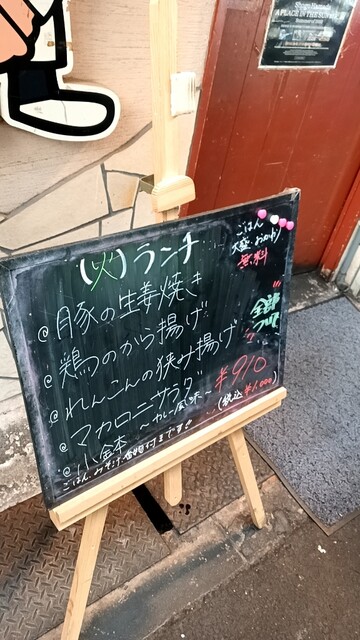 Shogo Hamada
A PLACE IN THE SUN
(火)ランチ
ごはん
大盛・おかわり
無料
@豚の生姜焼き
@鶏のから揚げ
@れんこんの挟み揚げ
@マカロニサラダ
～カレー風味～
@小鉢
全部
つけて
¥910
(税込¥1,000)
ごはん、みそ汁、香物付きます